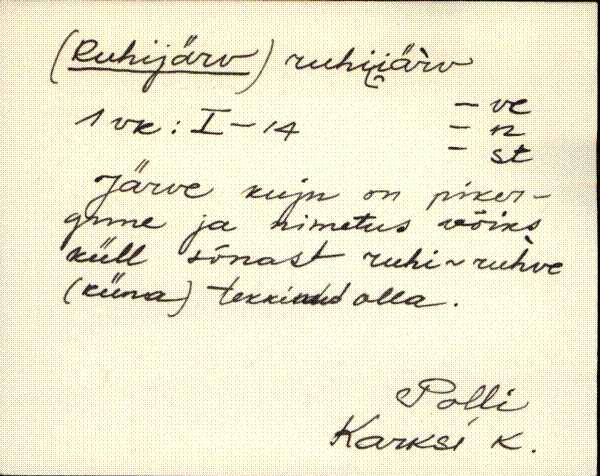 (Ruhijärv) ruhijä̀rv
1 vk: I-14
- ve
- n
- st
Järve kuju on piker-
gune ja nimetus võiks
küll sõnast ruhi ~ ruh̀ve
(küna) tekkinud olla.
Polli
Karksi k.